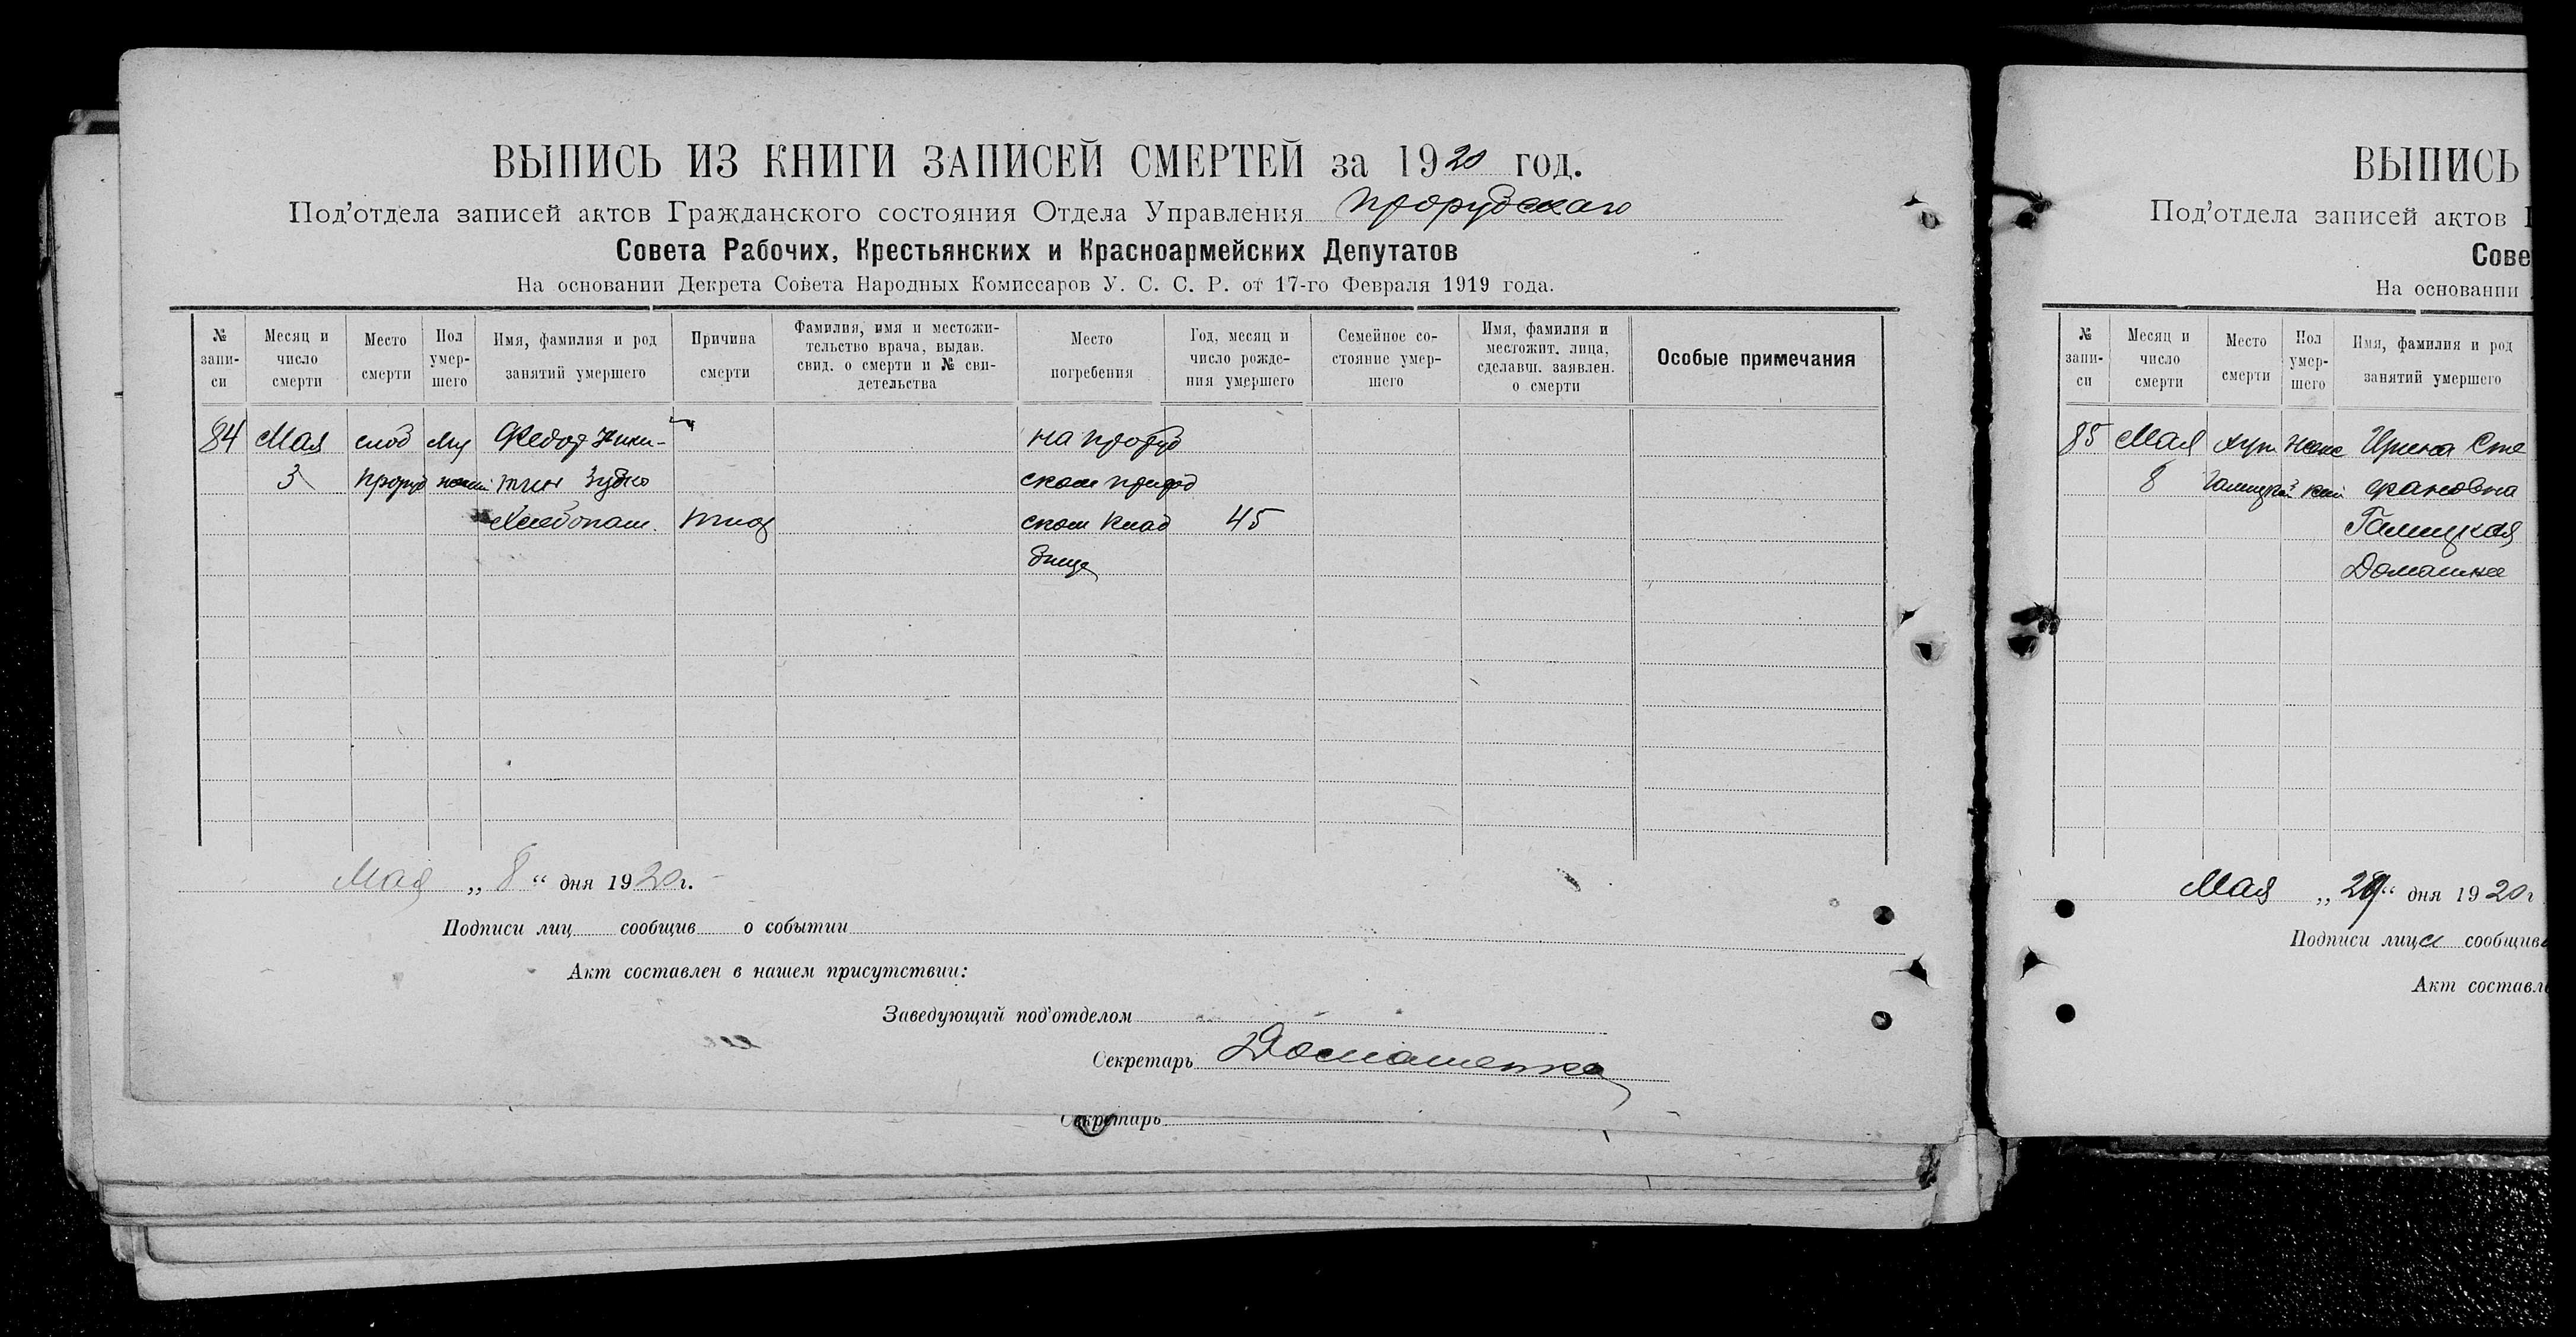 ВЫПИСЬ ИЗ КНИГИ ЗАПИСЕЙ СМЕРТЕЙ за 1920 год.
Под'отдела записей актов Гражданского состояния Отдела Управления Прорубскаго
Совета Рабочих, Крестьянских и Красноармейских Депутатов
На основании Декрета Совета Народных Комиссаров У. С. С. Р. от 17-го Февраля 1919 года.
№ запи-си
Месяц и число смерти
Место смерти
Пол умер-шего
Имя, фамилия и род занятий умершего
Причина смерти
Фамилия, имя и местожи-тельство врача, выдав. свид. о смерти и № сви-детельства
Место погребения
Год, месяц и число рожде-ния умершего
Семейное со-стояние умер-шего
Имя, фамилия и местожит. лица, сделавш. заявлен. о смерти
Особые примечания
84 Мая слод Му Федор Ники- на Проруб
3 Проруб жский тин Зубко ском приход
Хлебопаш. тиф ском клад 45
бище
Мая „ 8 “ дня 1920 г.
Подписи лиц сообщив о событии
Акт составлен в нашем присутствии:
Заведующий под'отделом
Секретарь Домашенко
Секретарь
ВЫПИСЬ
Под'отдела записей актов
Сове
На основании
№ запи-си
Месяц и число смерти
Место смерти
Пол умер-шего
Имя, фамилия и род занятий умершего
85 Мая хут женс Ирина Сте
8 кий фановна
Галицкая
Домашнее
Мая „ “ дня 1920 г
Подписи лица сообщив
Акт составле